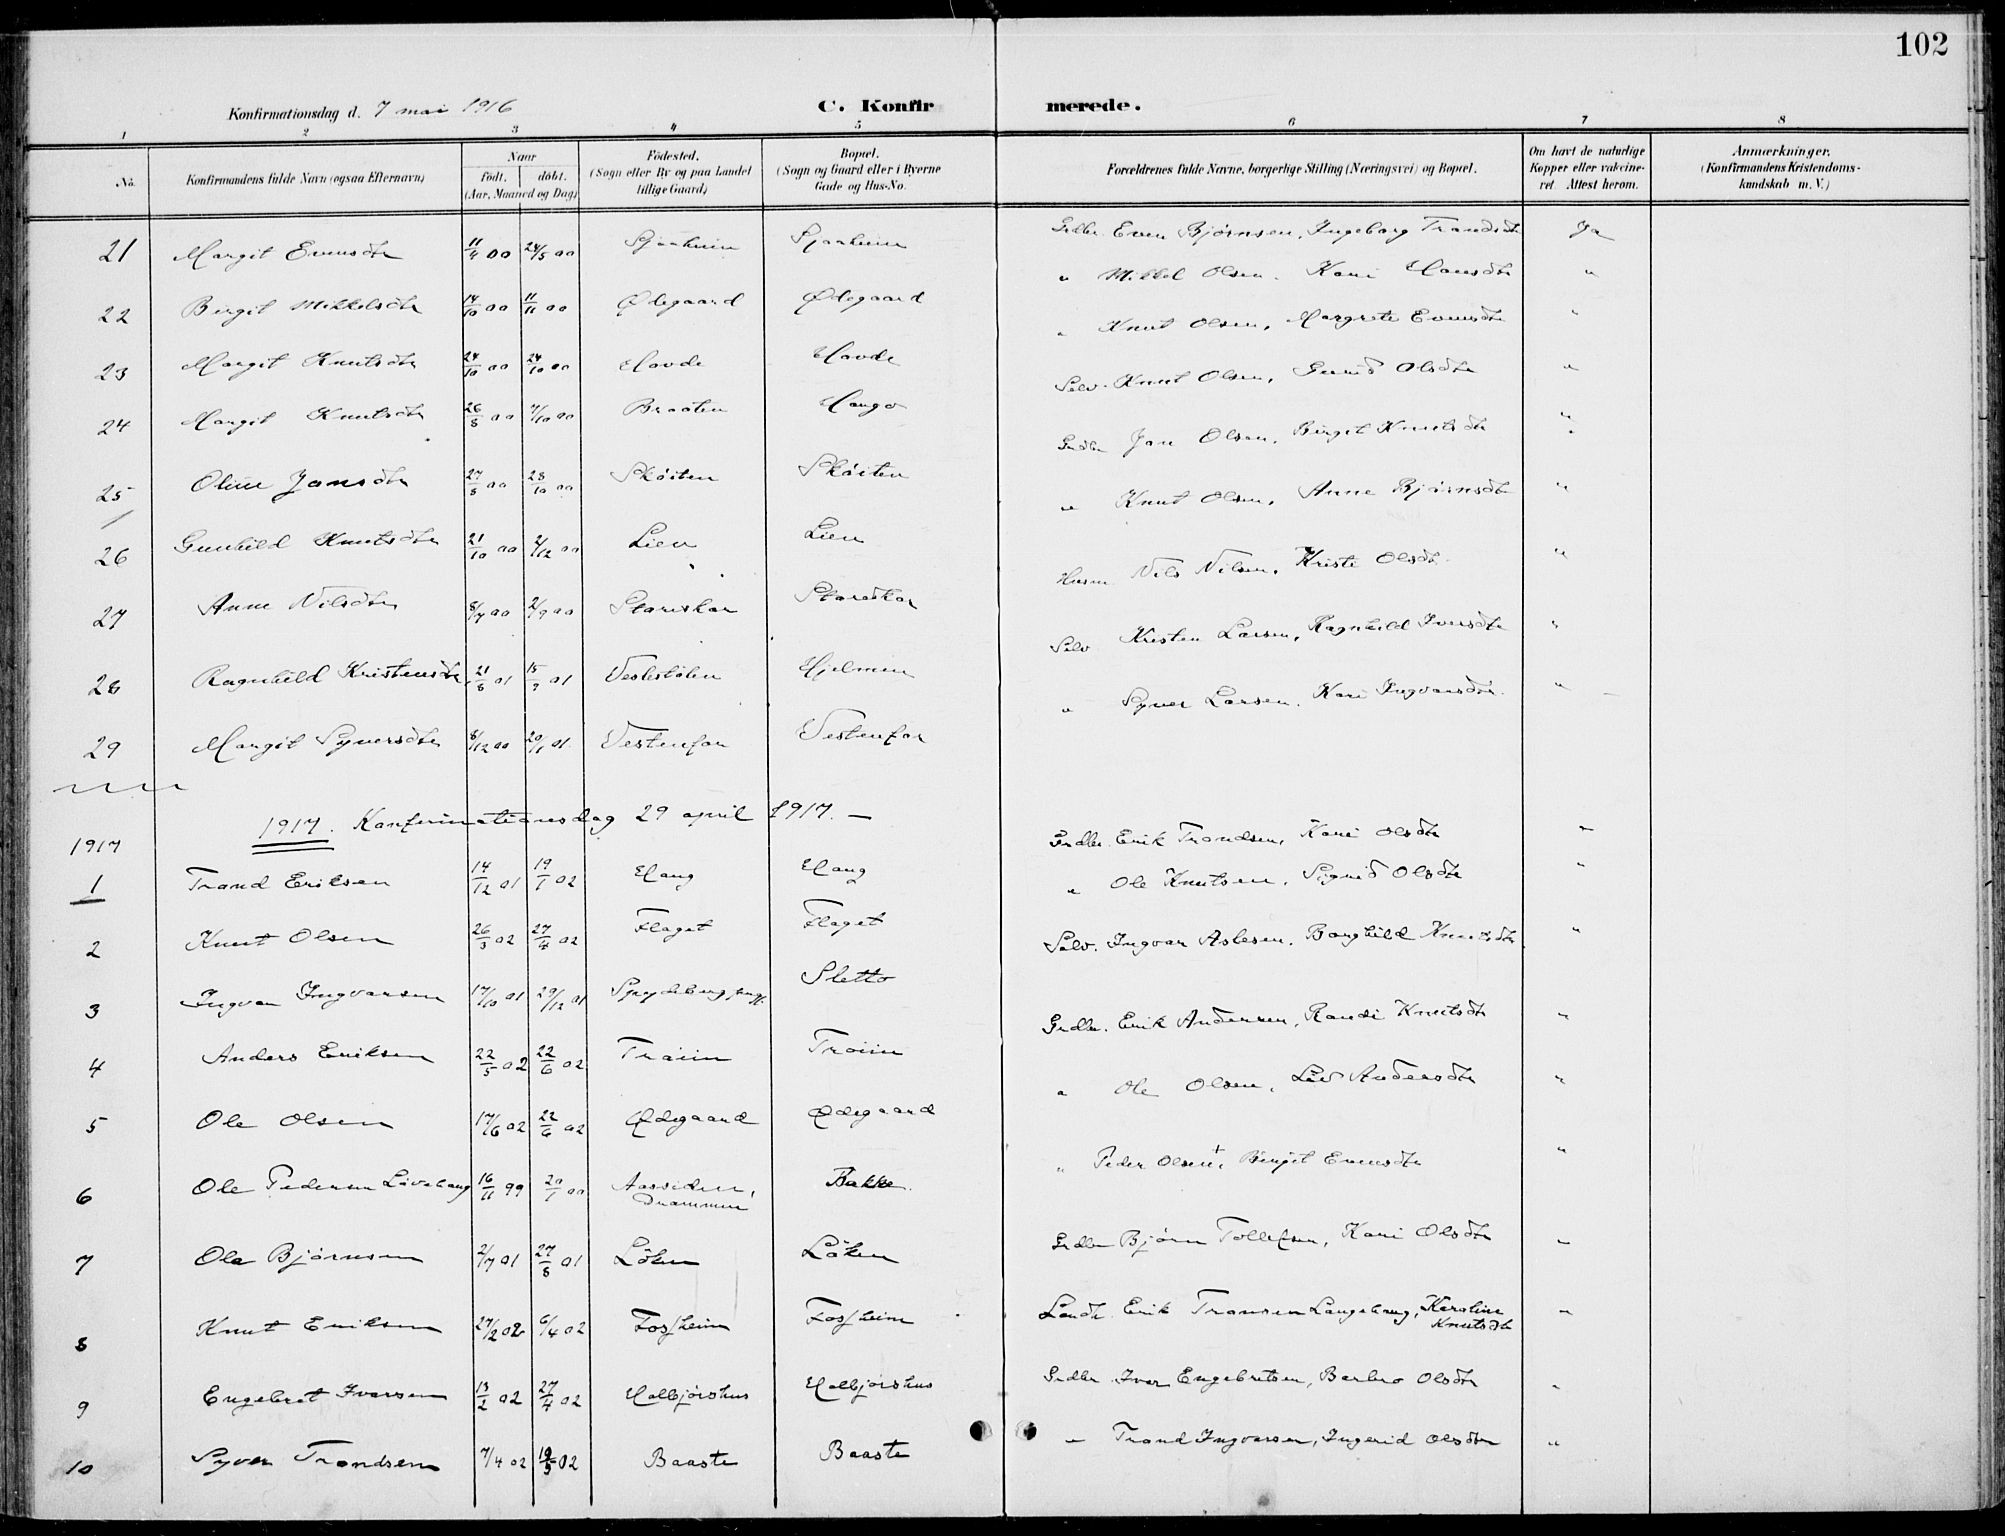 102
Konfirmationsdag d. 7 mai 1916 C. Konfir merede.
1 2 3 4 5 6 7 8
No. Konfirmandens fulde Navn (ogsaa Efternavn) Naar födt. döbt. (Aar, Maaned og Dag) Födested. (Sogn eller By og paa Landet tillige Gaard) Bopæl. (Sogn og Gaard eller i Byerne Gade og Hus-No. Forældrenes fulde Navne, borgerlige Stilling (Næringsvei) og Bopæl. Om havt de naturlige Kopper eller vakcineret. Attest herom. Anmærkninger. (Konfirmandens Kristendomskundskab m. V.)
21 Margit Evensdtr 11/4 00 24/5 00 Sjaaheim Sjaaheim Grdbr. Even Bjørnsen, Ingeborg Trondsdtr Ja
22 Birgit Mikkelsdtr 14/10 00 11/11 00 Ødegaard Ødegaard " Mikkel Olsen. Kari Hansdtr "
23 Margit Knutsdtr 24/10 00 Hovde Hovde " Knut Olsen, Margrete Evensdtr "
24 Margit Knutsdtr 26/8 00 7/10 00 Braaten Haugo Selv. Knut Olsen, Gurid Olsdtr "
25 Oline Jonsdtr 27/8 00 28/10 00 Sköiten Sköiten Grdbr Jon Olsen, Birgit Knutsdtr "
26 Gunhild Knutsdtr 21/10 00 2/12 00 Lien Lien " Knut Olsen, Anne Bjørnsdtr "
27 Anne Nilsdtr 8/7 00 2/9 00 Stareskar Stareskar Husm Nils Nilsen, Kristi Olsdtr. "
28 Ragnhild Kristensdtr 21/8 01 15/9 01 Veslestölen Hjelmen Selv Kristen Larsen, Ragnhild Iversdtr "
29 Margit Syversdtr 8/12 00 20/1 01. Vestenfor Vestenfor " Syver Larsen. Kari Ingvarsdtr. "
1917. Konfirmationsdag 29 april 1917. —
1917
1 Trond Eriksen 14/12 01 19/1 02 Haug Haug Grdbr. Erik Trondsen, Kari Olsdtr "
2 Knut Olsen 26/3 02 27/4 02 Flaget Flaget " Ole Knutsen, Sigrid Olsdtr "
3 Ingvar Ingvarsen 17/10 01 29/12 01 Sletto Selv. Ingvar Aslesen. Borghild Knutsdtr "
4 Anders Eriksen 22/5 02 22/6 02 Tröiin Tröiin Grdbr. Erik Andersen, Randi Knutsdtr "
5 Ole Olsen 17/6 02 22/6 02 Ødegaard Ødegaard " Ole Olsen, Liv Andersdtr "
6 Ole Pedersen Lövehaug 16/11 99 20/1 00 Aassiden, Drammen Bakke. " Peder Olsen+, Birgit Evensdtr "
7 Ola Bjørnsen 2/7 01 27/8 01 Löken Löken Grdbr Bjørn Tollefsen, Kari Olsdtr "
8 Knut Eriksen 27/2 02 6/4 02 Fosheim Fosheim Landh. Erik Tronsen Langehaug, Karoline Knutsdtr "
9 Engebret Iversen 13/2 02 27/4 02 Halbjörshus Halbjörshus Grdbr Iver Engebretsen, Barbro Olsdtr "
10 Syver Trondsen 7/4 02 19/5 02 Baaste Baaste " Trond Ingvarsen, Ingerid Olsdtr "